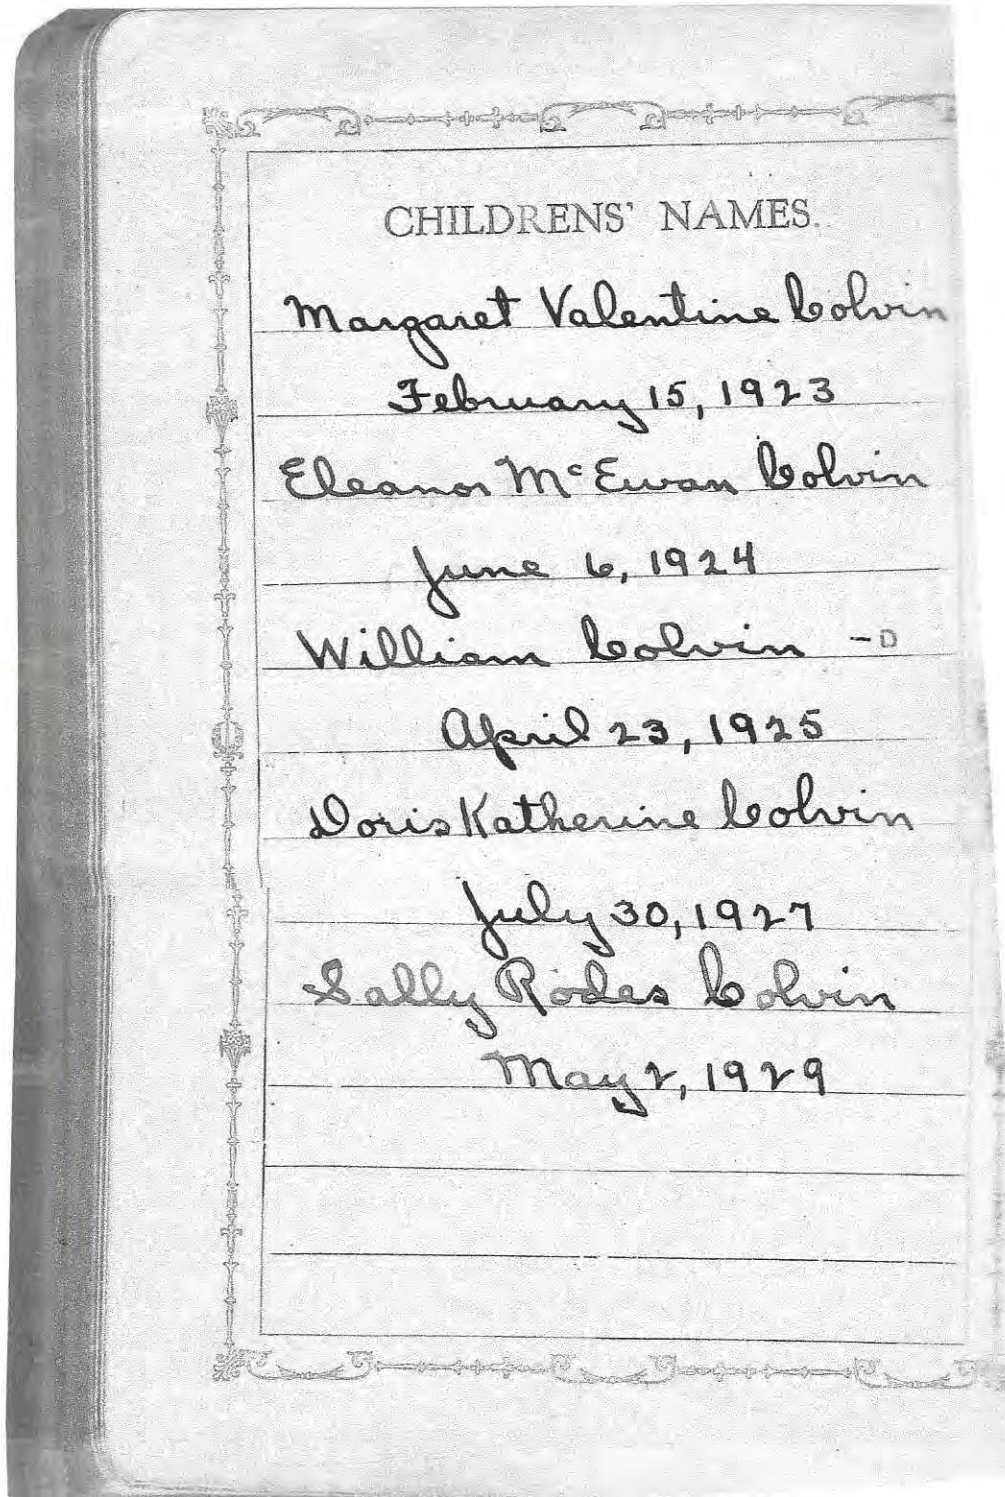 CHILDRENS' NAMES.
Margaret Valentine Colvin
February 15, 1923
Eleanor McEwan Colvin
June 6, 1924
William Colvin - D
April 23, 1925
Doris Katherine Colvin
July 30, 1927
Sally Rodes Colvin
May 2, 1929